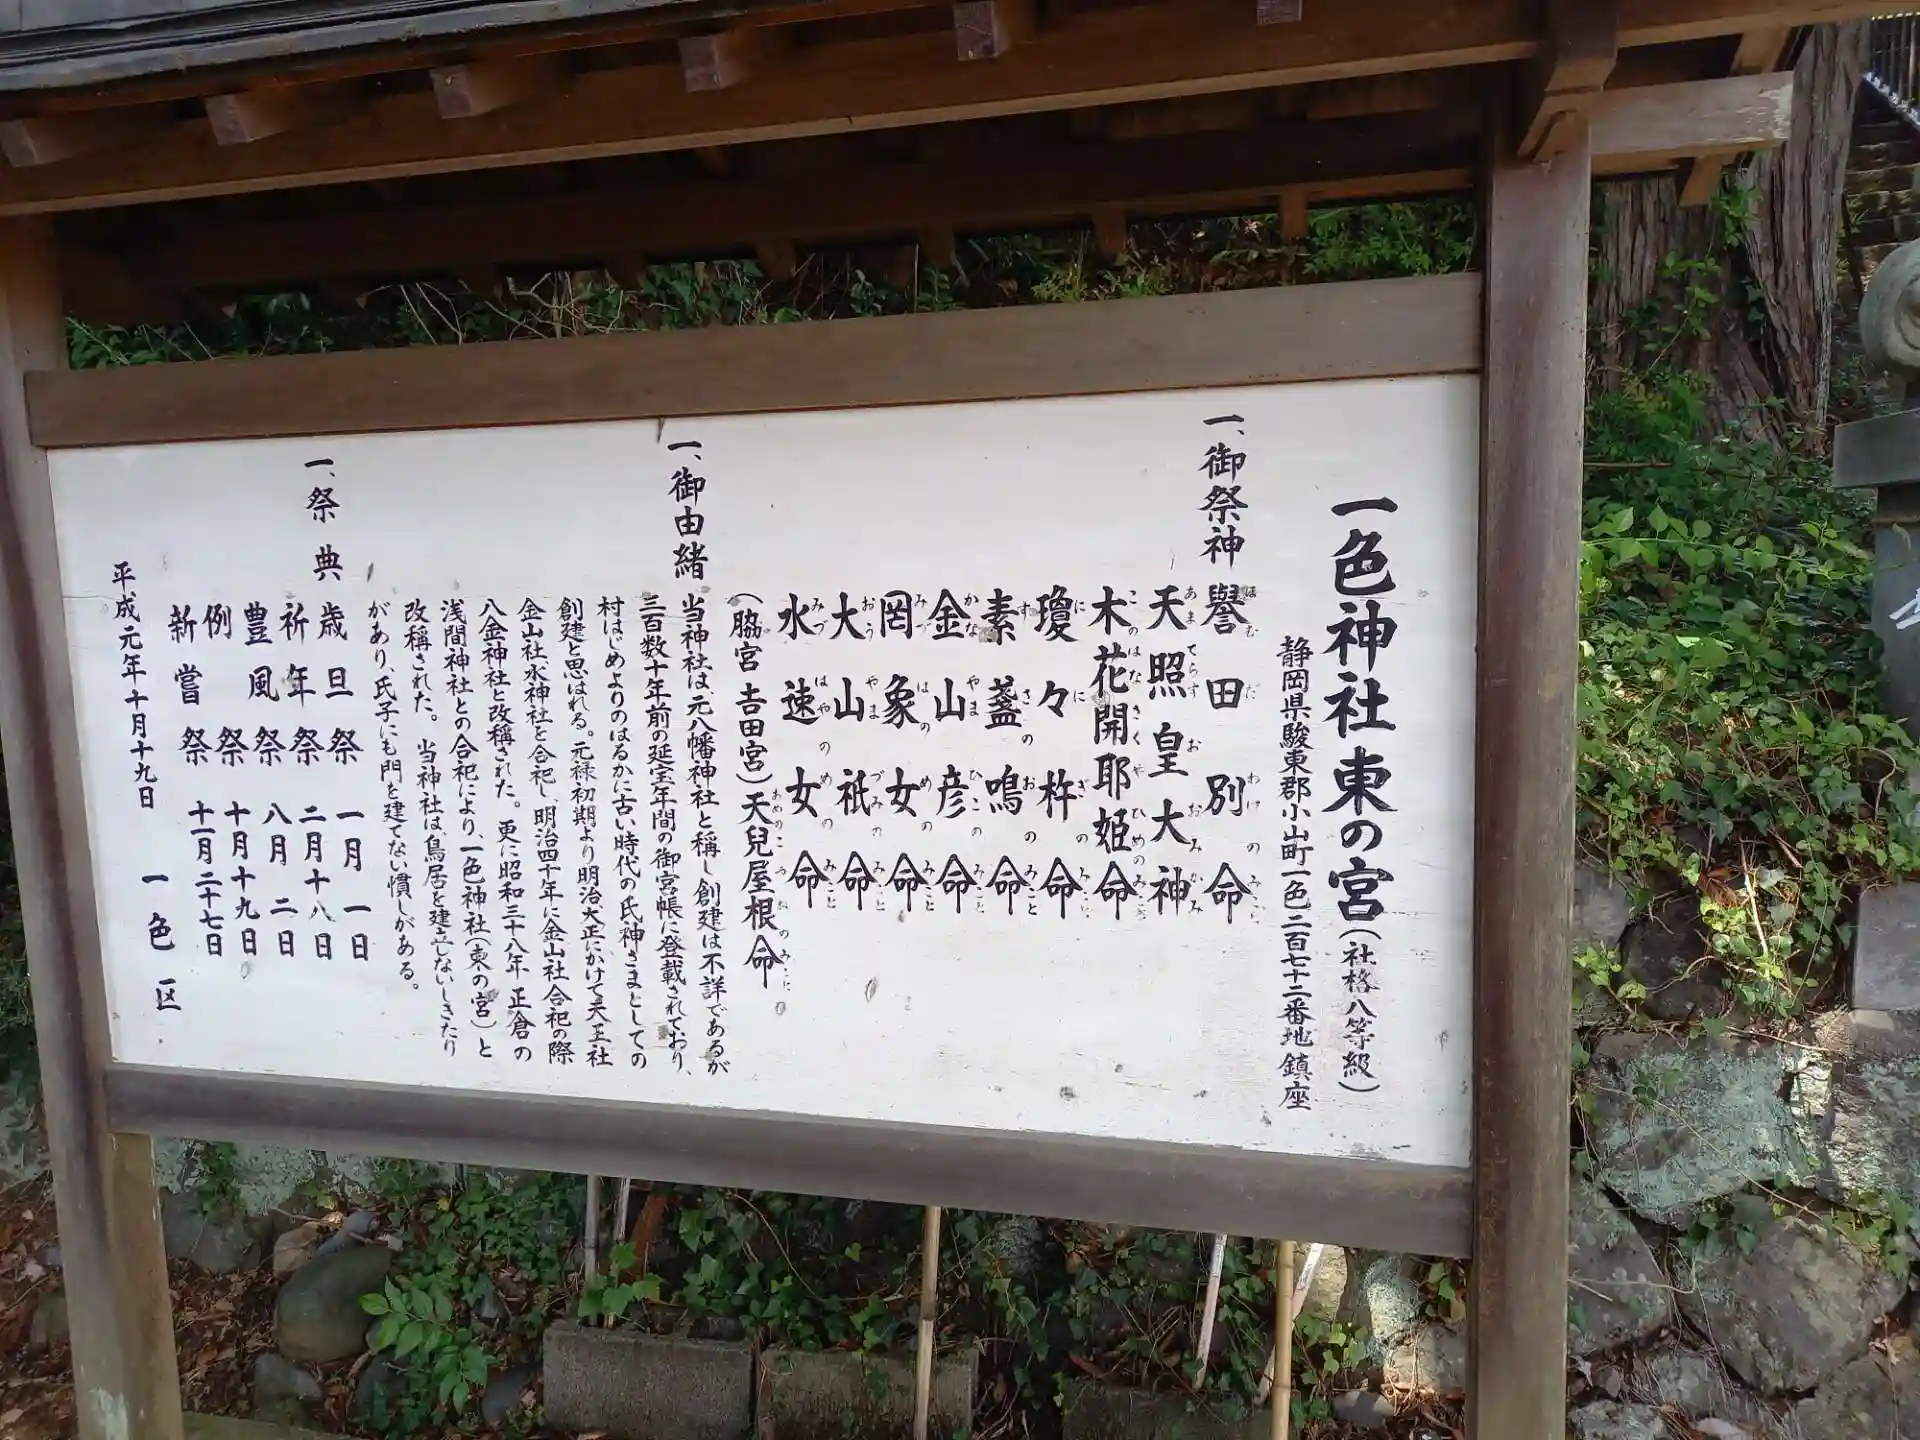 一色神社東の宮(社格八等級)
静岡県駿東郡小山町一色二百七十二番地鎮座
一、御祭神
譽田別命
天照皇大神
木花開耶姫命
瓊々杵命
素盞鳴命
金山彦命
罔象女命
大山祇命
水速女命
(脇宮吉田宮)天兒屋根命
一、御由緒
当神社は元八幡神社と稱し創建は不詳であるが
三百数十年前の延宝年間の御宮帳に登載されており、
村はじめよりのはるかに古い時代の氏神さまとしての
創建と思はれる。元禄初期より明治大正にかけて天王社
金山社、水神社を合祀し、明治四十年に金山社合祀の際
八金神社と改稱された。更に昭和三十八年、正倉の
浅間神社との合祀により、一色神社(東の宮)と
改稱された。当神社は、鳥居を建立しないしきたり
があり、氏子にも門を建てない慣しがある。
一、祭典
歳旦祭 一月一日
祈年祭 二月十八日
豊風祭 八月二日
例祭 十月十九日
新嘗祭 十一月二十七日
平成元年十月十九日 一色区